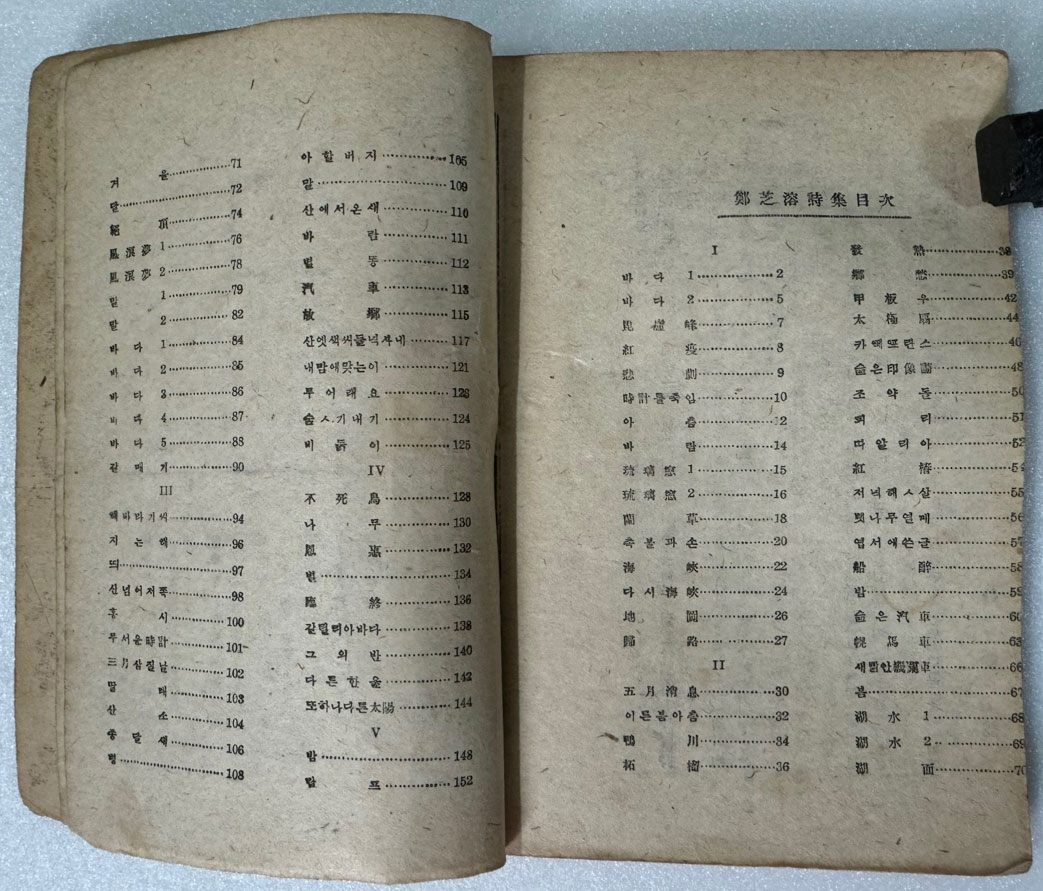 鄭芝溶詩集目次
I
바다 1 2
바다 2 5
毘盧峰 7
紅疫 8
悲劇 9
時計를죽임 10
아츰 12
바람 14
琉璃窓 1 15
琉璃窓 2 16
蘭草 18
촉불과손 20
海峽 22
다시海峽 24
地圖 26
歸路 27
II
五月消息 30
이른봄아츰 32
鴨川 34
柘榴 36
發熱 38
鄕愁 39
甲板우 42
太極扇 44
카페프란스 46
슬픈印像畵 48
조약돌 50
피리 51
따알리아 52
紅椿 54
저녁해ㅅ살 55
뻣나무열매 56
엽서에쓴글 57
船醉 58
밤 59
슬픈汽車 60
幌馬車 63
새빩안機關車 66
봄 67
湖水 1 68
湖水 2 69
湖面 70
거울 71
달 72
絕頂 74
風浪夢 1 76
風浪夢 2 78
말 1 79
말 2 82
바다 1 84
바다 2 85
바다 3 86
바다 4 87
바다 5 88
갈매기 90
III
해바라기씨 94
지는해 96
띄 97
산넘어저쪽 98
홍시 100
무서운時計 101
三月삼질날 102
딸레 103
산소 104
종달새 106
병 108
아할버지 105
말 109
산에서온새 110
바람 111
별똥 112
汽車 113
故鄕 115
산엣색씨들녁사내 117
내맘에맞는이 121
무어래요 123
숨ㅅ기내기 124
비둙이 125
IV
不死鳥 128
나무 130
恩惠 132
별 134
臨終 136
갈릴레아바다 138
그의반 140
다른한울 142
또하나다른太陽 144
V
밤 148
람프 152